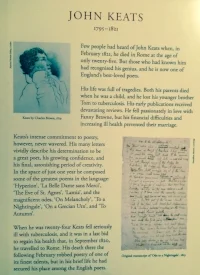 JOHN KEATS
1795–1821
Few people had heard of John Keats when, in
February 1821, he died in Rome at the age of
only twenty-five. But those who had known him
had recognised his genius, and he is now one of
England's best-loved poets.
His life was full of tragedies. Both his parents died
when he was a child, and he lost his younger brother
Tom to tuberculosis. His early publications received
devastating reviews. He fell passionately in love with
Fanny Brawne, but his financial difficulties and
increasing ill health prevented their marriage.
Keats's intense commitment to poetry,
however, never wavered. His many letters
vividly describe his determination to be
a great poet, his growing confidence, and
his final, astonishing period of creativity.
In the space of just one year he composed
some of the greatest poems in the language:
'Hyperion', 'La Belle Dame sans Merci',
'The Eve of St. Agnes', 'Lamia', and the
magnificent odes, 'On Melancholy', 'To a
Nightingale', 'On a Grecian Urn', and 'To
Autumn'.
When he was twenty-four Keats fell seriously
ill with tuberculosis, and it was in a last bid
to regain his health that, in September 1820,
he travelled to Rome. His death there the
following February robbed poetry of one of
its finest talents, but in his brief life he had
secured his place among the English poets.
Keats by Charles Brown, 1819
Original manuscript of Ode to a Nightingale, 1819